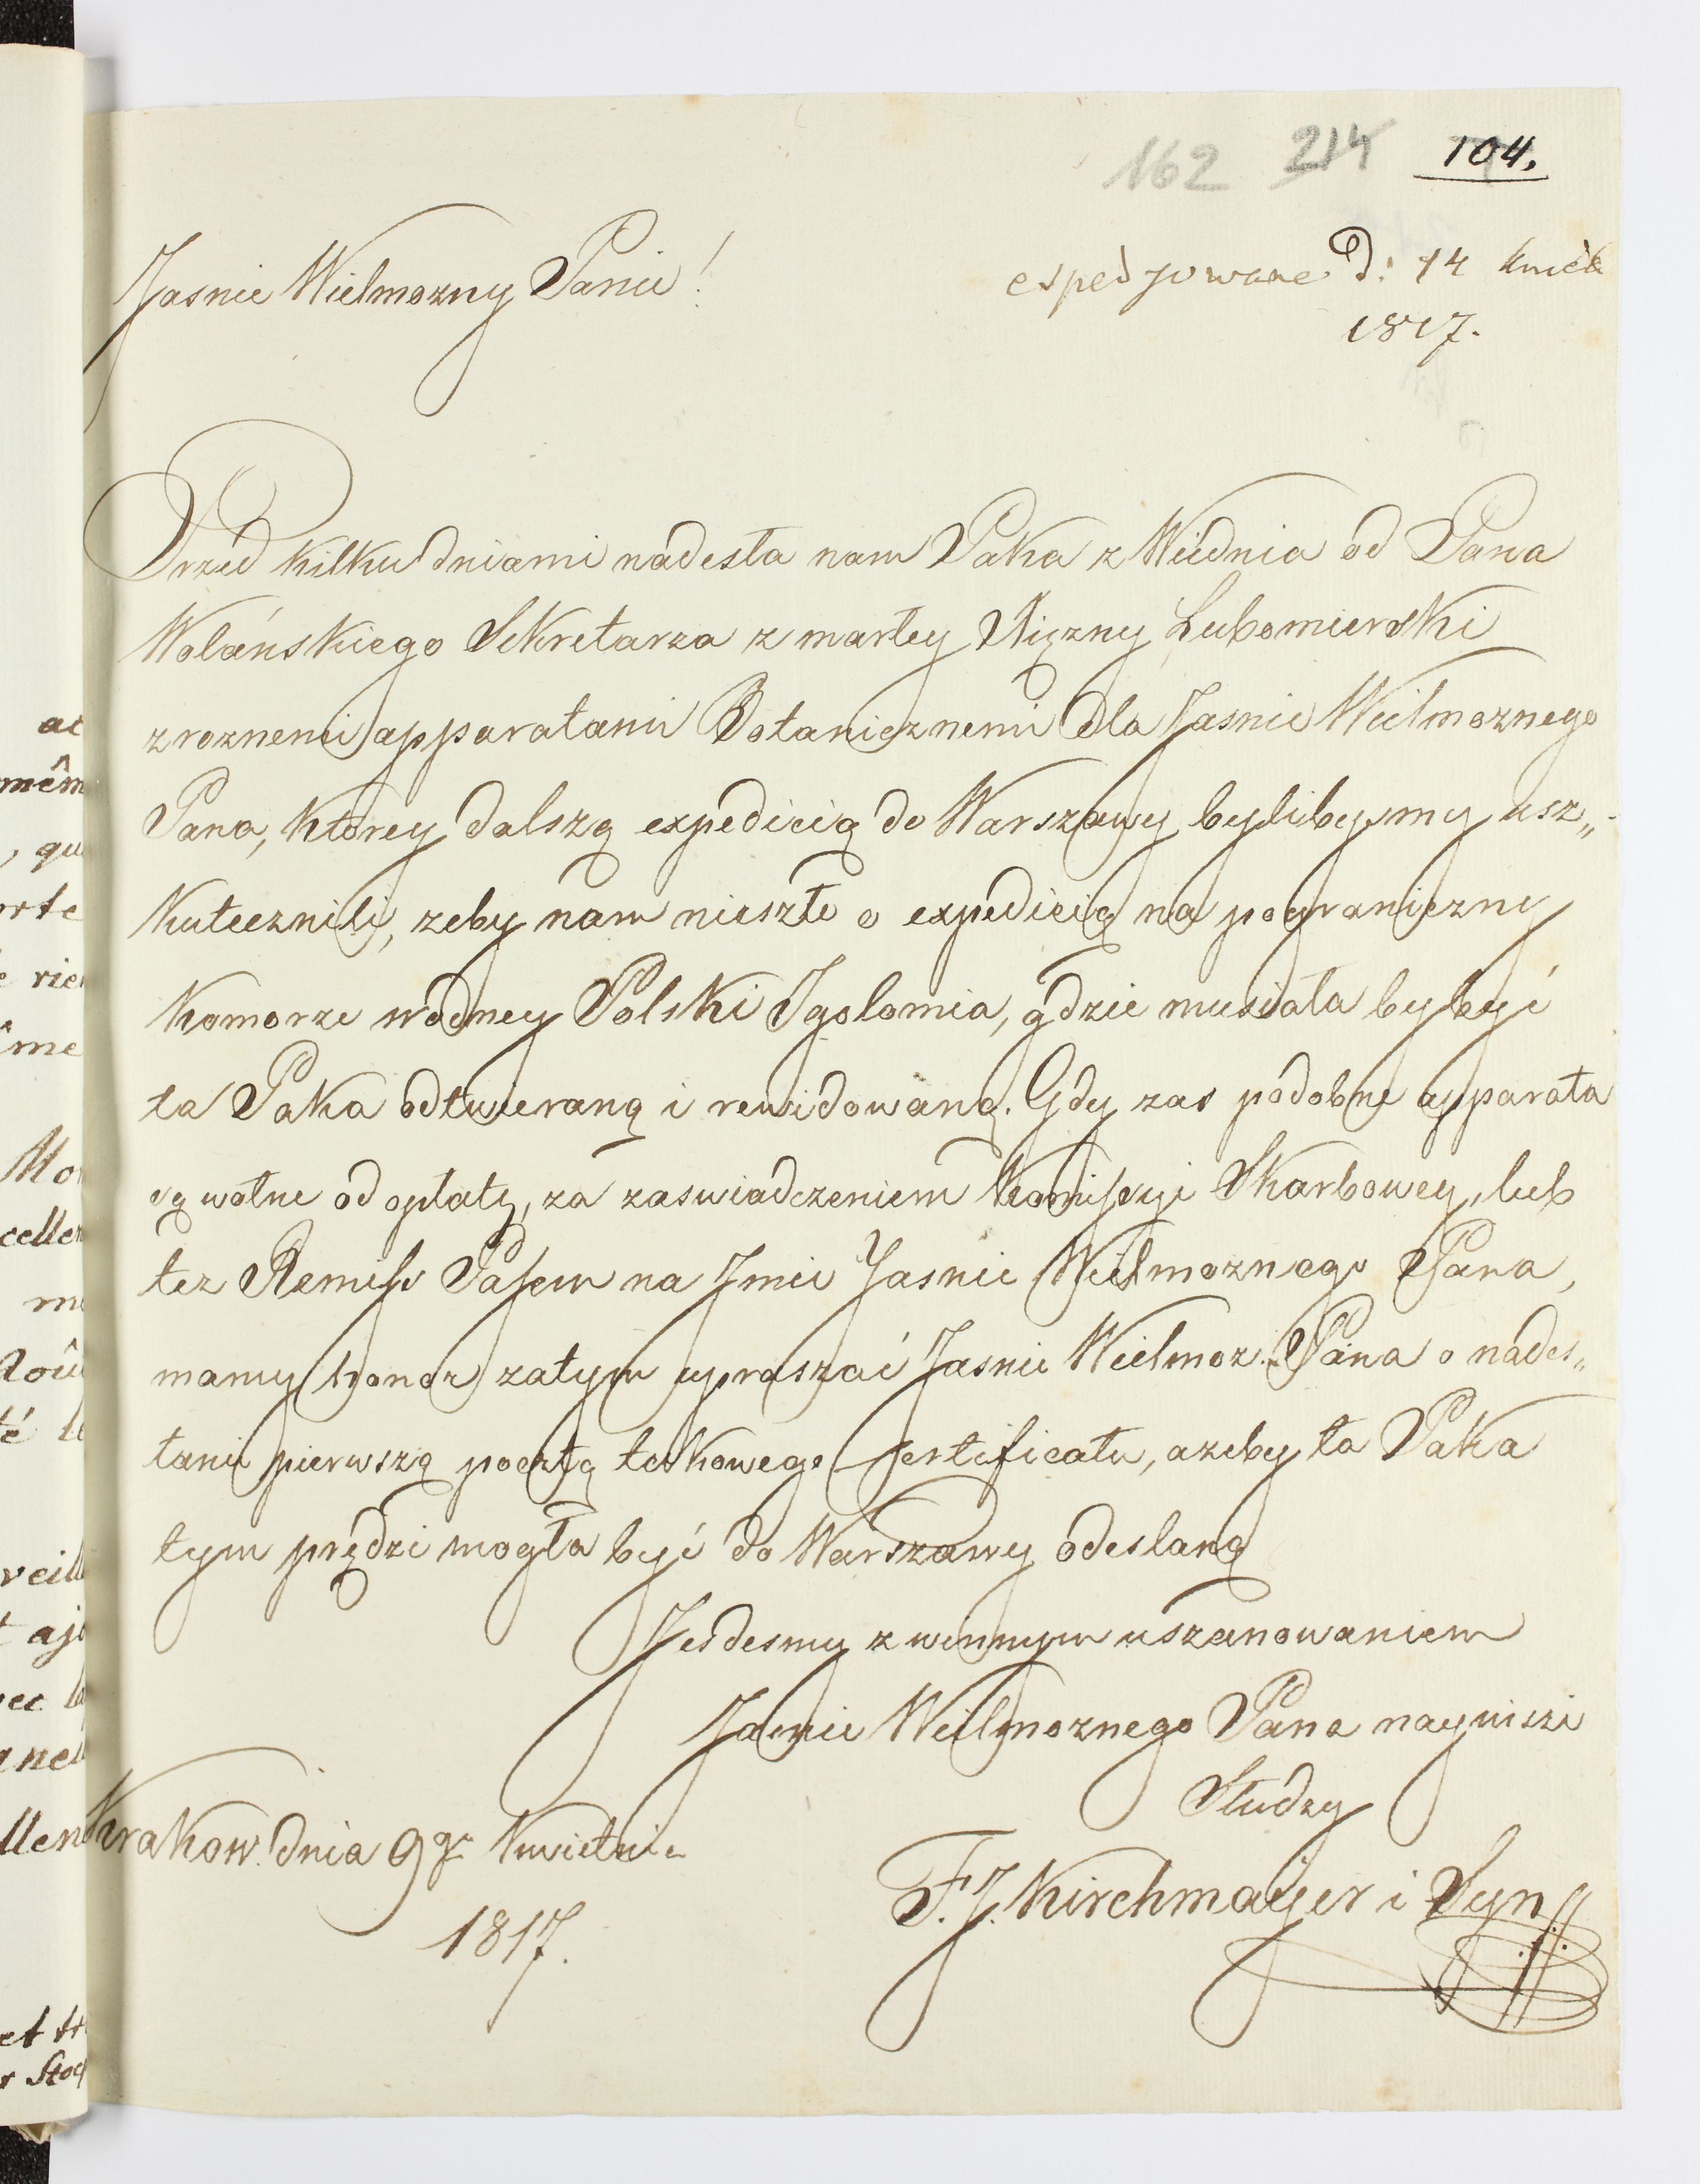 162 214 104.
expedjowane D: 14 kwiet
1817.
Jasnie Wielmozny Panie!
Przed kilku dniami nadesła nam Paka z Wiednia od Pana
Wolańskiego Sekretarza zmarłey Xięzny Lubomierski
z roznemi apparatami Botanicznemi dla Jasnie Wielmoznego
Pana, ktorey dalszą expedicią do Warszawy bylibysmy usz„
kutecznili, zeby nam nieszło o expedicią na pograniczny
Komorze wodney Polski Igolomia, gdzie musiała by być
ta Paka odtwieraną i rewidowaną. Gdy zas podobne apparata
są wolne od opłaty, za zaswiadczeniem Komissyi Skarbowey, lub
tez Remiss Passem na Jmie Jasnie Wielmoznego Pana,
mamy honor zatym upraszać Jasnie Wielmoz. Pana o nades„
łanie pierwszą pocztą takowego Certificatu, azeby ta Paka
tym prędzi mogła być do Warszawy odeslaną
Jesdesmy z winnym uszanowaniem
Jasnie Wielmoznego Pana nayniszi
Słudzy
Krakow dnia 9go Kwietnia
1817.
F. J. Kirchmayer i Syn
ac
mêm
, qu
orte
e rie
ême
Mo
celle
veill
t aj
et